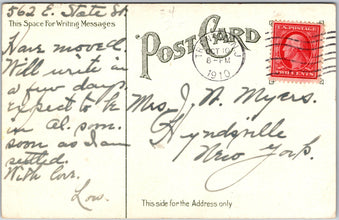 562 E. State St
This Space For Writing Messages
Have moved.
Will write in
a few days.
expect to be
in Al. soon.
soon as I am
settled.
With love.
POST CARD
OCT 10
6-PM
1910
U.S. POSTAGE
TWO CENTS
Mrs. J. N. Myers.
Hyndsville
New York.
This side for the Address only